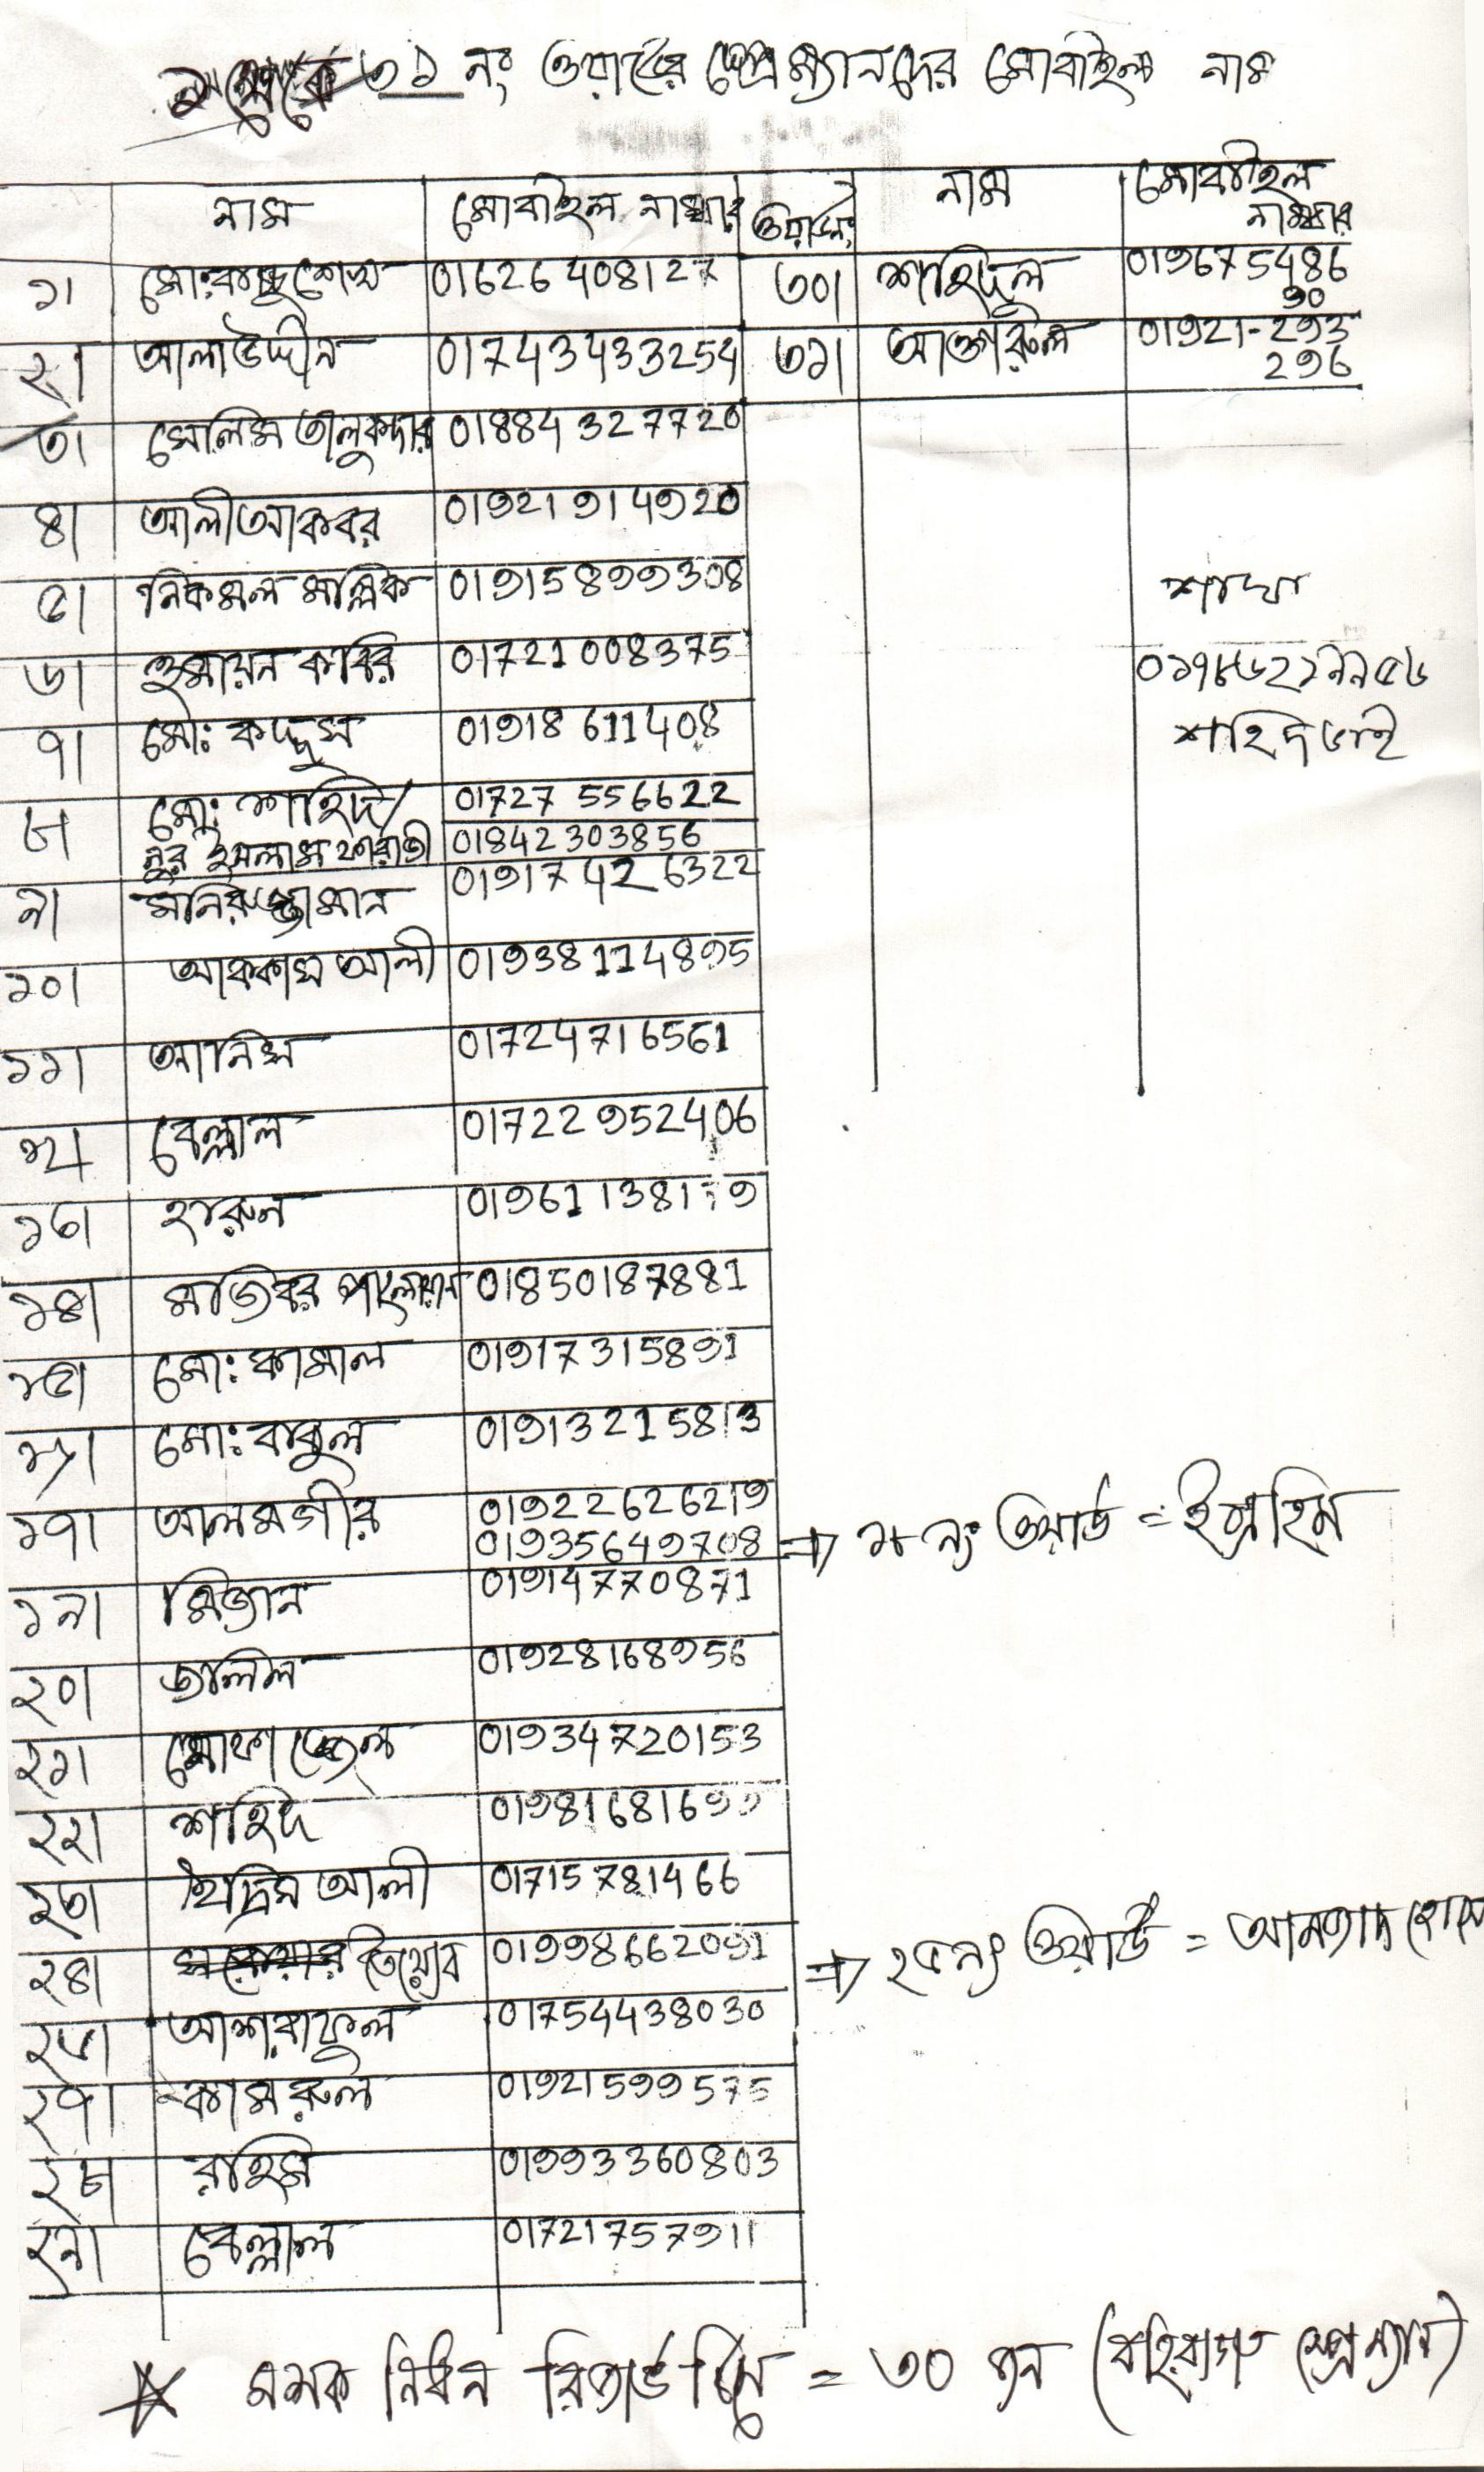 ৩১ নং ওয়ার্ডের স্প্রেম্যানদের মোবাইল নাম
নাম মোবাইল নাম্বার ওয়ার্ডনং নাম মোবাইল নাম্বার
১। শেখ 01626408127 ৩০। শাহিদুল 019675486 90
২। আলাউদ্দীন 01743433254 ৩১। আশরুল 01921-293 296
৩। সেলিম তালুকদার 01884327720
৪। আলীআকবর 01921914920
৫। নিকমল মল্লিক 01915899308
৬। হুমায়ন কবির 01721008375
৭। মোঃ কদ্দুস 01918611408
৮। মোঃ শাহিদ/ 01727 556622
নুর ইসলাম ফারাজী 01842303856
৯। মনিরুজ্জামান 01917426322
১০। আককাস আলী 01938114895
১১। আনিস 01724716561
১২। বেল্লাল 01722952406
১৩। হারুন 01961138179
১৪। মজিবর 01850187881
১৫। মোঃ কামাল 01917315891
১৬। মোঃ বাবুল 01913215813
১৭। আলমগীর 01922626219
01935649708 ⇒ ১৮ নং ওয়ার্ড = ইব্রাহিম
১৯। মিজান 01914770871
২০। জলিল 01928168956
২১। মোফাজ্জেল 01934720153
২২। শহিদ 01981681699
২৩। ইদ্রিস আলী 01715781466
২৪। তৈয়েব 01998662091 ⇒ ২৫নং ওয়ার্ড = আমজাদ হোসে
২৬। আশরাফুল 01754438030
২৭। কামরুল 01921599575
২৮। রহিম 01993360803
২৯। বেল্লাল 01721757911
শাখা
০১৭৮৬২১৯৯৫৬
শহিদ ভাই
☆ মশক নিধন রিজার্ভ টিমে = ৩০ জন (বহিরাগত স্প্রেম্যান)